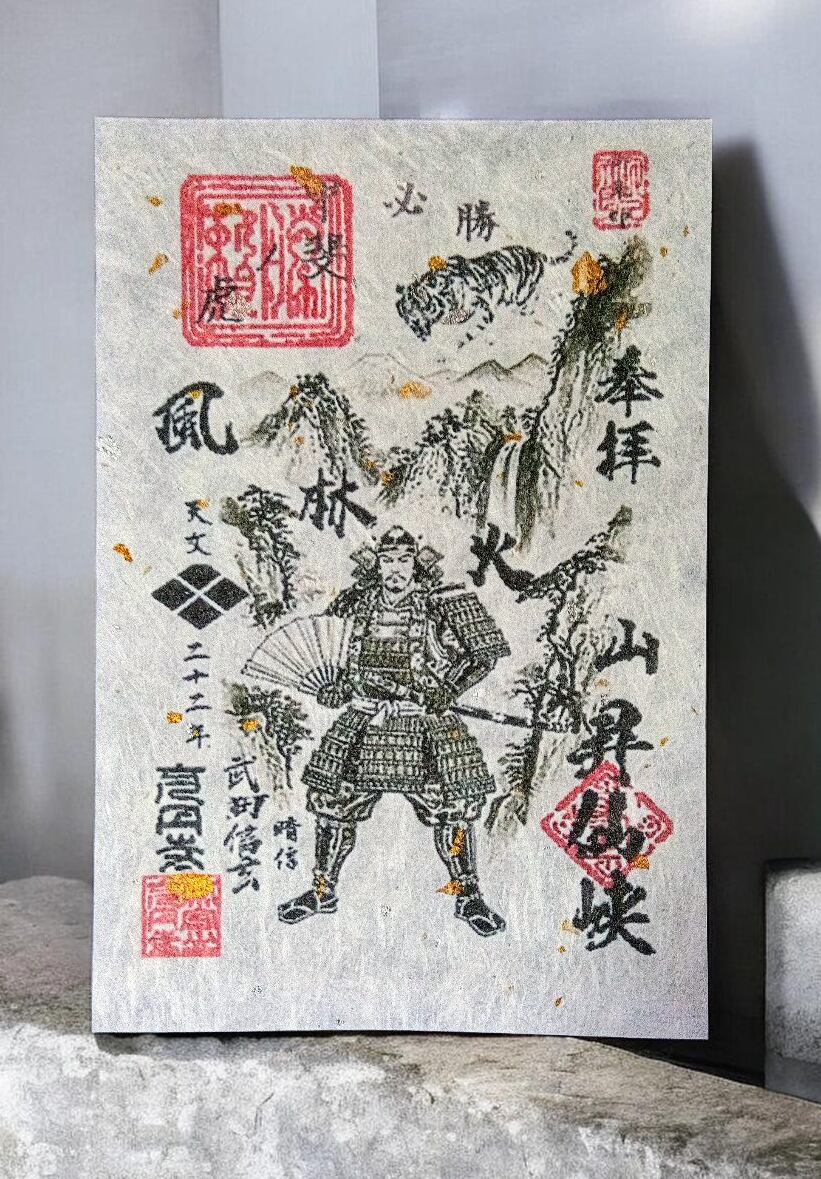 奉拝
昇仙峡
必勝
甲斐
ノ
虎
風林火山
天文
二十二年
武田信玄
晴信